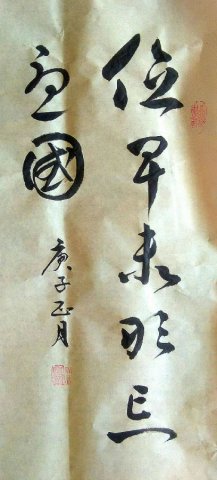 位卑未敢忘
忧国
庚子正月